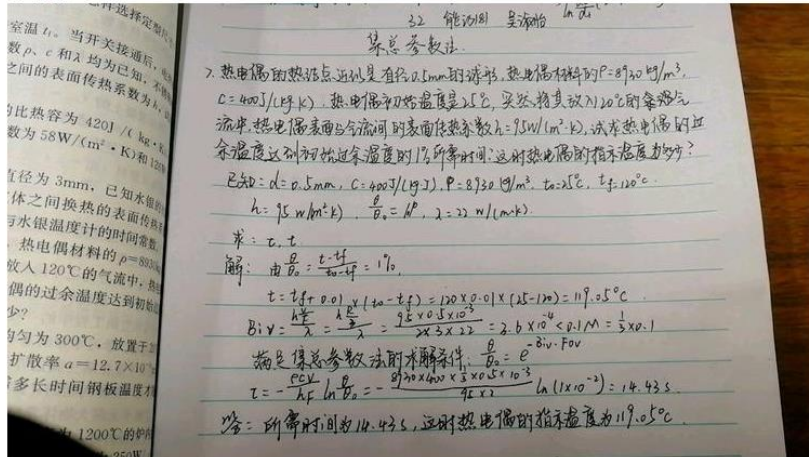 件选择定型
室温 t₁。当开关接通后,
数 ρ、c 和 λ 均为已知,
之间的表面传热系数为 h,
的比热容为 420J/(kg·
数为 58W/(m²·K)和 120
直径为 3mm,已知水银的
体之间换热的表面传热
与水银温度计的时间常数
热电偶材料的 ρ=8930
放入 120℃的气流中,热
偶的过余温度达到初始
少?
均匀为 300℃,放置于
扩散率 a=12.7×10
多长时间钢板温度才
1200℃的炉
350W
32 能源181
集总参数法.
7. 热电偶的热结点近似是直径0.5mm的球形,热电偶材料的ρ=8930kg/m³,
C=400J/(kg·K).热电偶初始温度是25℃,突然将其放入120℃的气
流中,热电偶表面与气流间的表面传热系数h=95W/(m²·k),试求热电偶的过
余温度达到初始过余温度的1%所需时间?这时热电偶的指示温度为多少?
已知:d=0.5mm, C=400J/(kg·J), ρ=8930kg/m³, t₀=25℃, tf=120℃.
h=95w/(m²·k), θ/θ₀=, λ=22w/(m·k).
求:τ,t
解:由θ/θ₀=(t-tf)/(t₀-tf)=1%,
t=tf+0.01×(t₀-tf)=120×0.01×(25-120)=119.05℃.
Biv= = =(95×0.5×10⁻³)/(2×3×22)=3.6×10⁻⁴<0.1M=1/3×0.1
满足集总参数法的求解条件:θ/θ₀=e^(-Biv·Fov)
τ=-(ρcV/hF)ln(θ/θ₀)=- ln(1×10⁻²)=14.43s.
答:所需时间为14.43s,这时热电偶的指示温度为119.05℃.